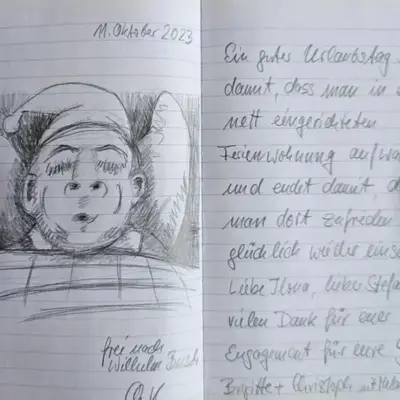 11. Oktober 2023
frei nach
Wilhelm Busch
Ein guter Urlaubstag
damit, dass man in
nett eingerichteten
Ferienwohnung aufwa
und endet damit, d
man dort zufrieden
glücklich wieder einsc
Liebe Ilona, lieber Stefa
vielen Dank für euer
Engagement für eure
Brigitte + Christoph